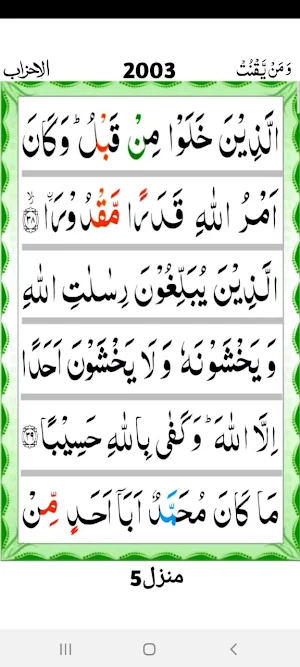 وَمَنْ يَّقْنُتْ 2003 الاحزاب
الَّذِيْنَ خَلَوْا مِنْ قَبْلُ ؕ وَكَانَ
اَمْرُ اللهِ قَدَرًا مَّقْدُوْرَاۨ ﴿۳۸﴾
الَّذِيْنَ يُبَلِّغُوْنَ رِسٰلٰتِ اللهِ
وَيَخْشَوْنَهٗ وَلَا يَخْشَوْنَ اَحَدًا
اِلَّا اللهَ ؕ وَكَفٰى بِاللهِ حَسِيْبًا ﴿۳۹﴾
مَا كَانَ مُحَمَّدٌ اَبَاۤ اَحَدٍ مِّنْ
منزل5